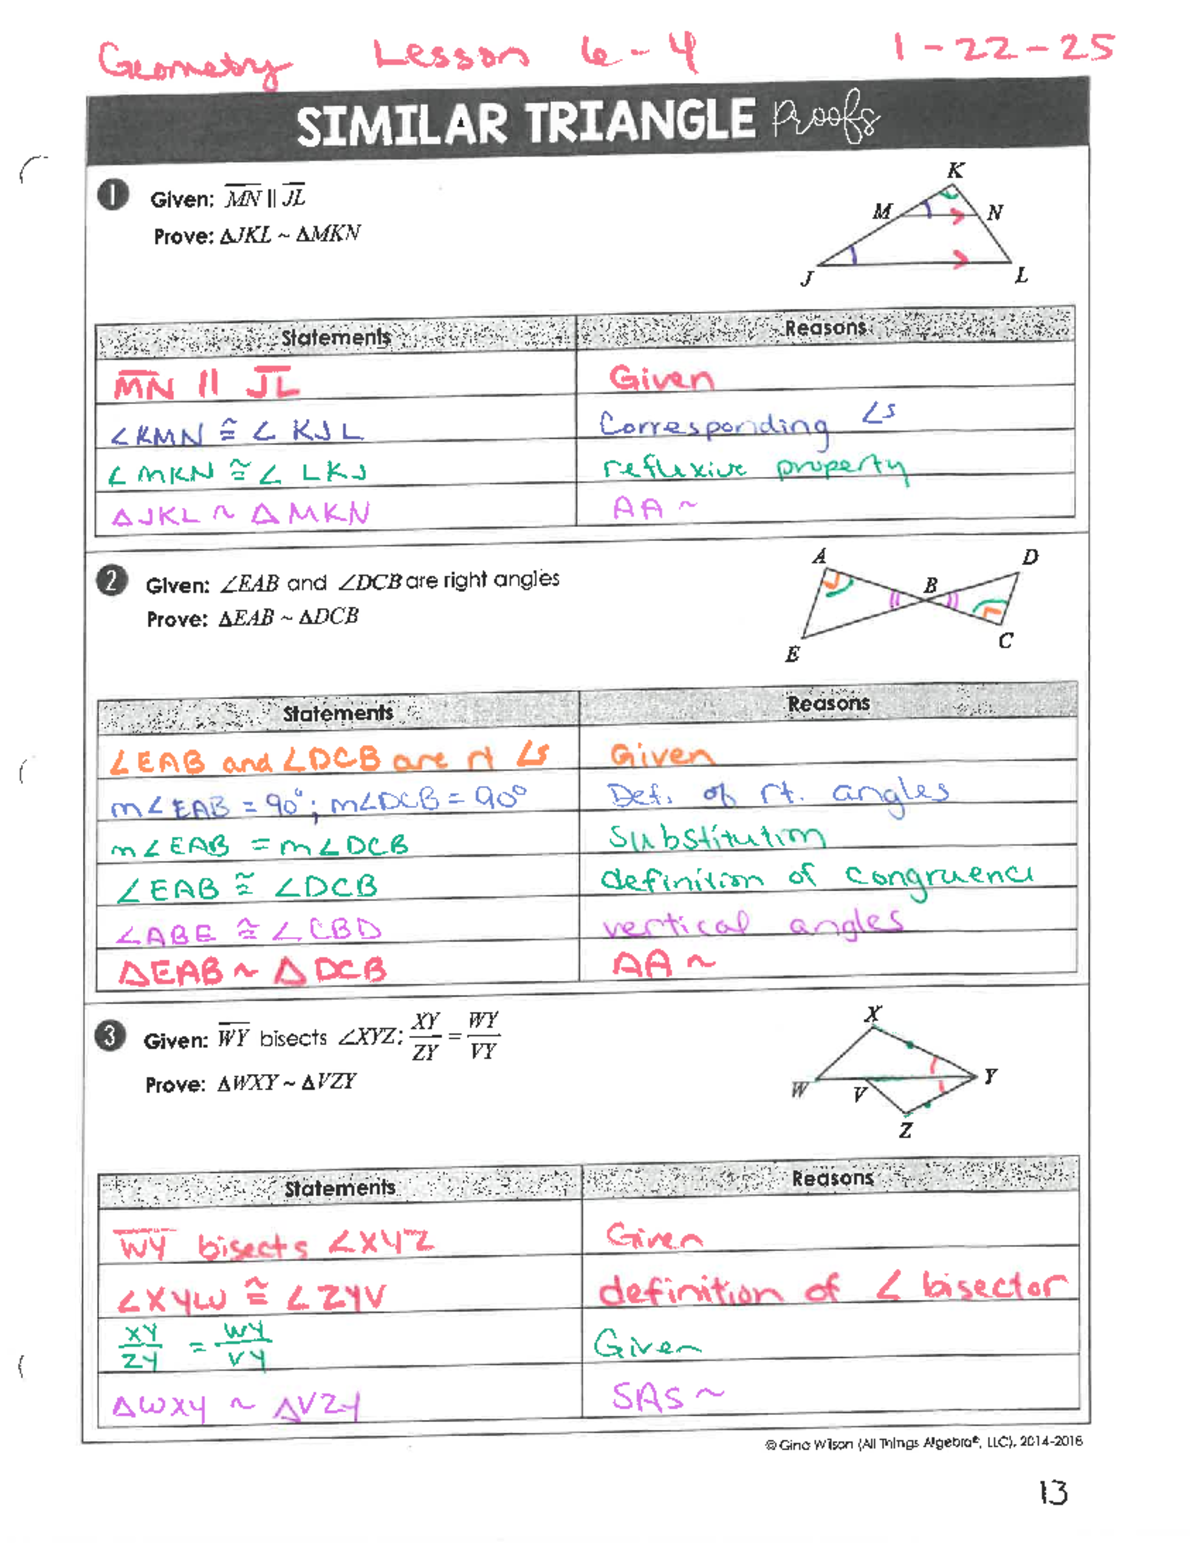 Geometry Lesson 6-4 1-22-25
SIMILAR TRIANGLE Proofs
1 Given: MN || JL
Prove: ΔJKL ~ ΔMKN
K
M
N
J
L
Statements Reasons
MN || JL Given
∠KMN ≅ ∠KJL Corresponding ∠s
∠MKN ≅ ∠LKJ reflexive property
ΔJKL ~ ΔMKN AA ~
2 Given: ∠EAB and ∠DCB are right angles
Prove: ΔEAB ~ ΔDCB
A
D
B
C
E
Statements Reasons
∠EAB and ∠DCB are rt ∠s Given
m∠EAB = 90°; m∠DCB = 90° Def. of rt. angles
m∠EAB = m∠DCB Substitution
∠EAB ≅ ∠DCB definition of congruence
∠ABE ≅ ∠CBD vertical angles
ΔEAB ~ ΔDCB AA ~
3 Given: WY bisects ∠XYZ; XY/ZY = WY/VY
Prove: ΔWXY ~ ΔVZY
X
Y
W
V
Z
Statements Reasons
WY bisects ∠XYZ Given
∠XYW ≅ ∠ZYV definition of ∠ bisector
XY/ZY = WY/VY Given
ΔWXY ~ ΔVZY SAS ~
© Gina Wilson (All Things Algebra®, LLC), 2014-2018
13